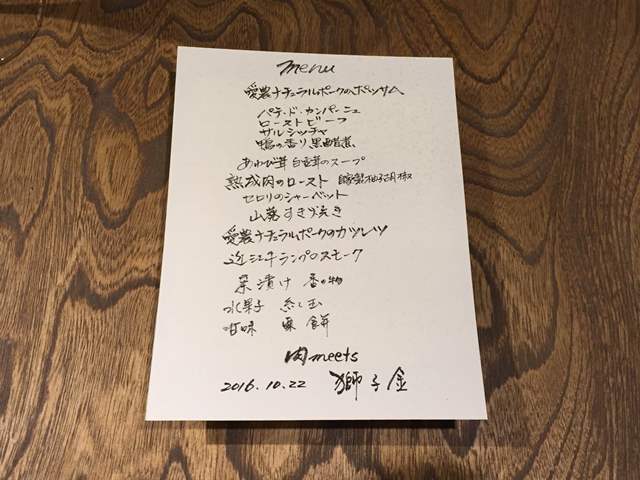 menu
愛農ナチュラルポークのポッサム
パテ・ド・カンパーニュ
ローストビーフ
サルシッチャ
鴨の香り黒醋煮
あわび茸 白茸のスープ
熟成肉のロースト 自家製柚子胡椒
セロリのシャーベット
山菜すきやき
愛農ナチュラルポークのカツレツ
近江牛ランプのスモーク
菜漬け 香の物
水菓子 紅玉
甘味 栗餅
肉meets
2016.10.22 獅子金